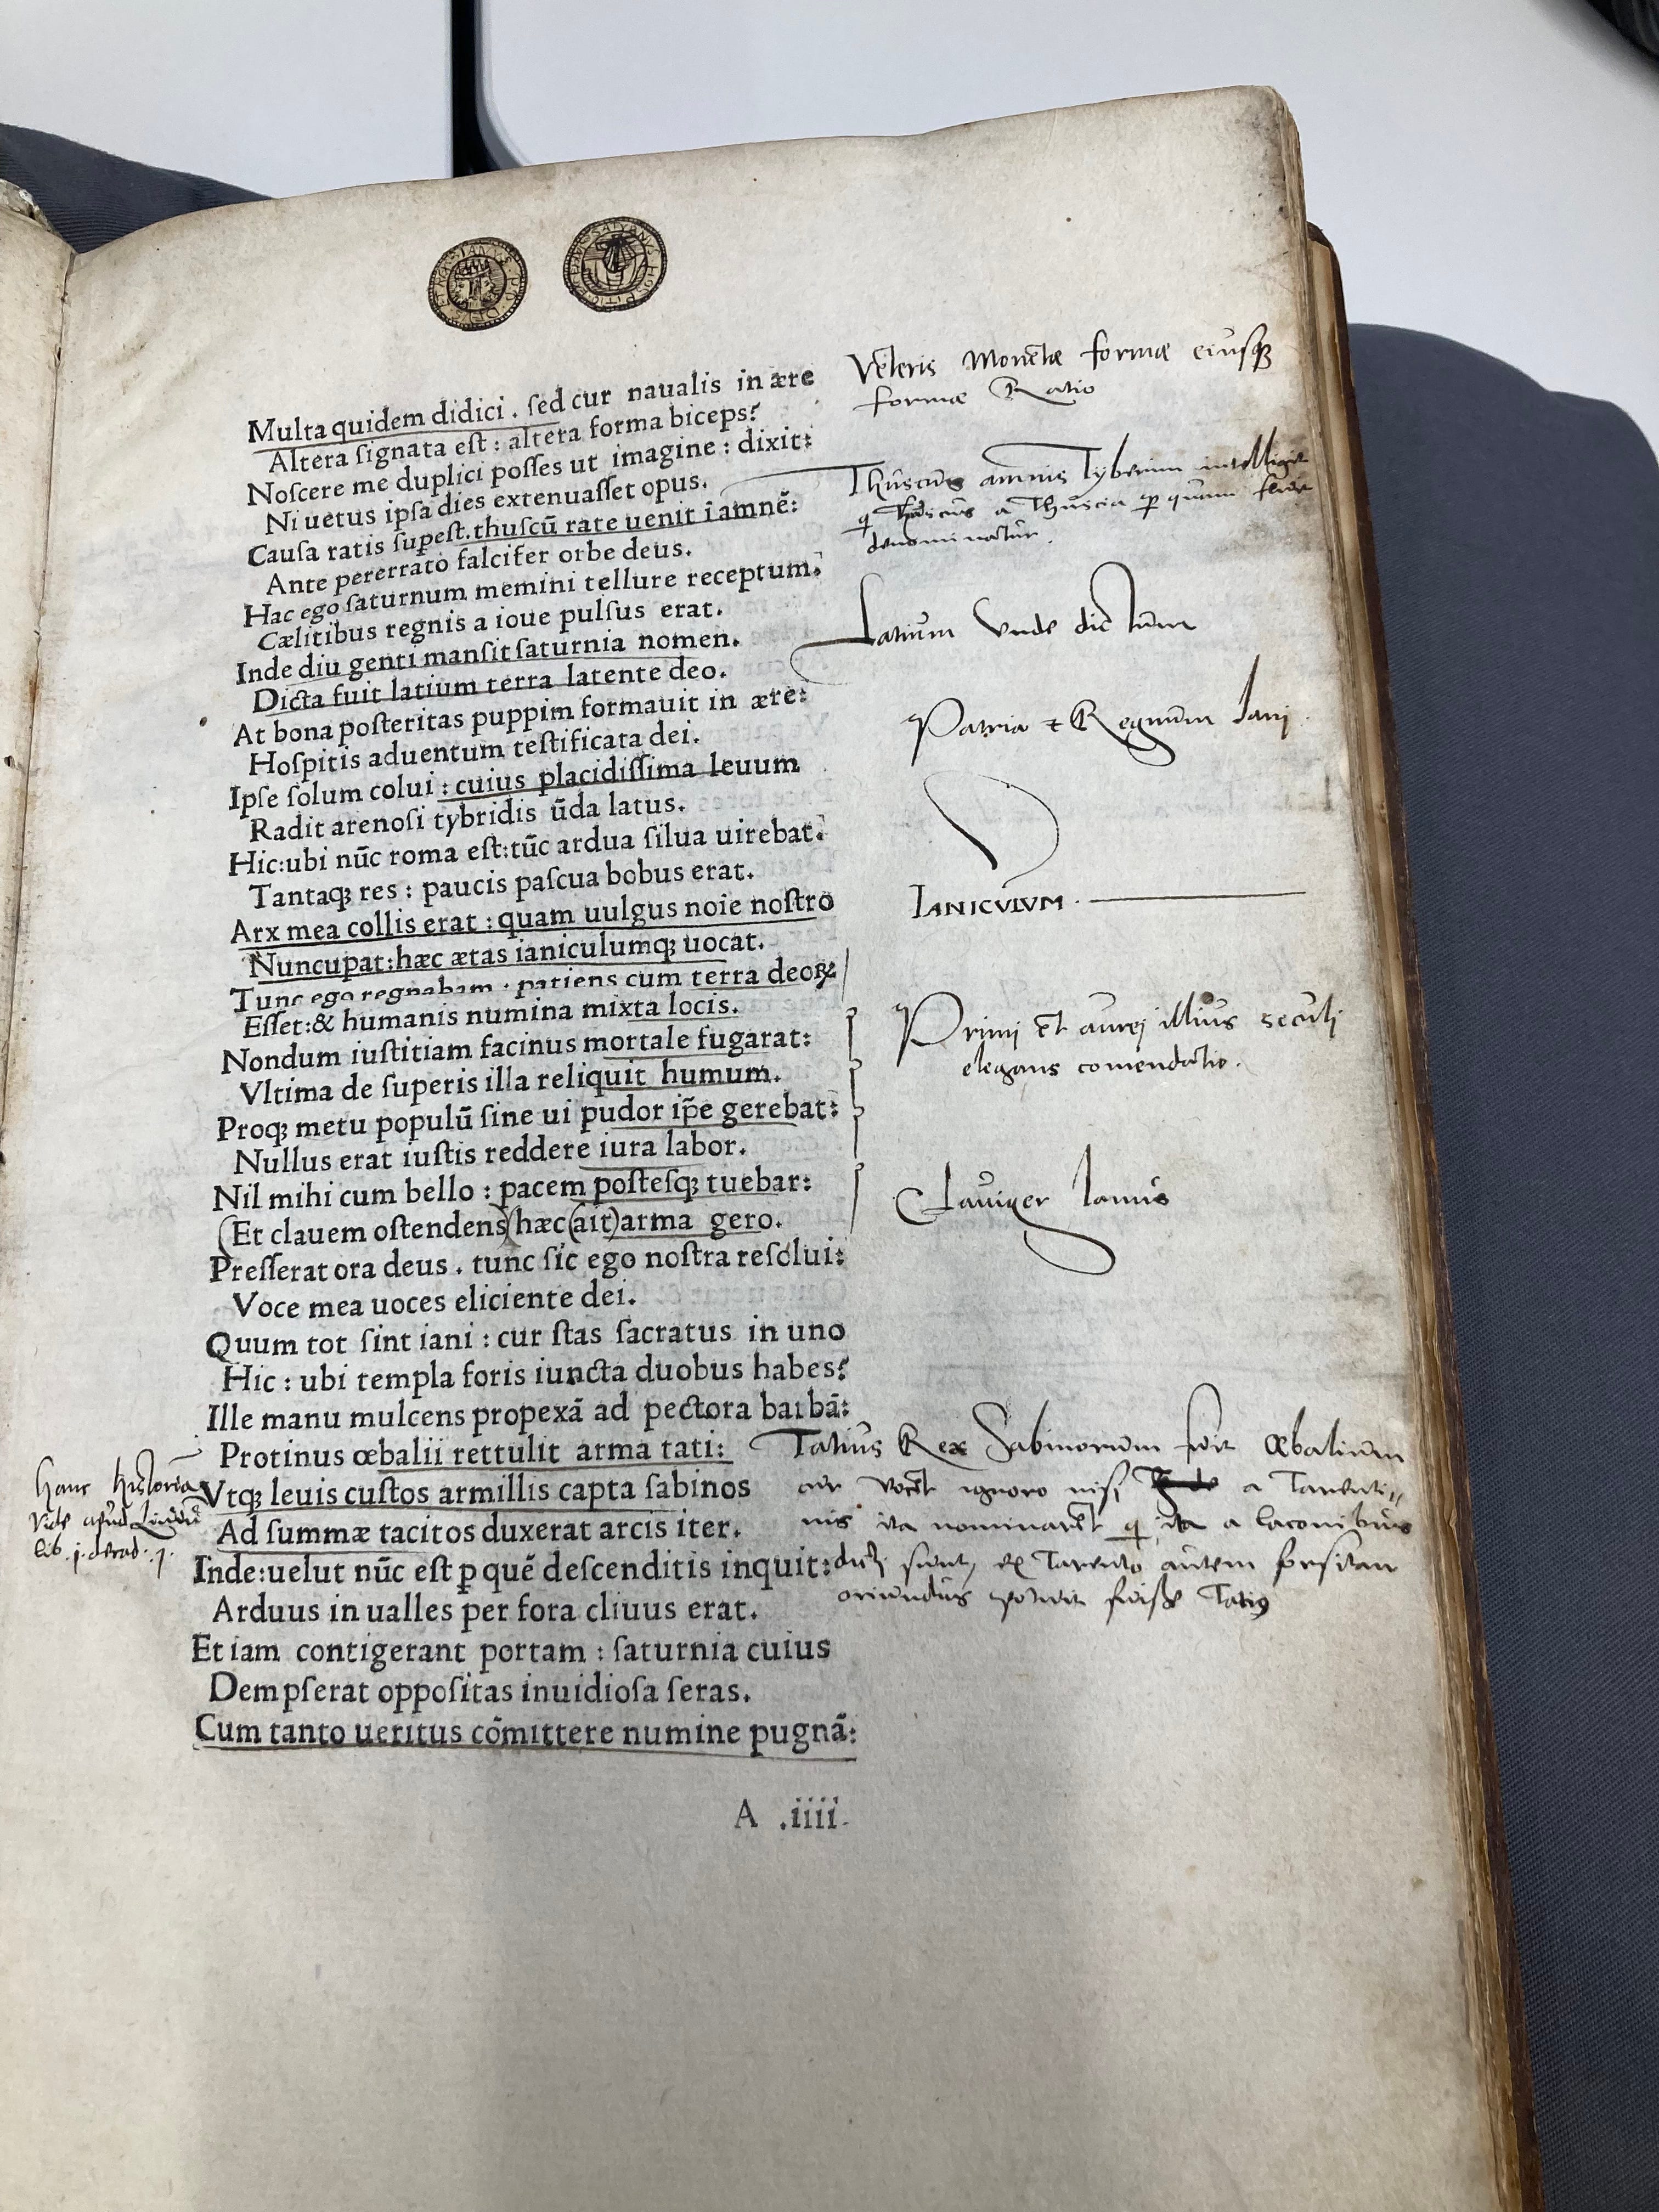 Multa quidem didici . ſed cur naualis in ære
Altera ſignata eſt : altera forma biceps?
Noſcere me duplici poſſes ut imagine : dixit:
Ni uetus ipſa dies extenuaſſet opus.
Cauſa ratis ſupeſt. thuſcū rate uenit i amnē:
Ante pererrato falcifer orbe deus.
Hac ego ſaturnum memini tellure receptum:
Cælitibus regnis a ioue pulſus erat.
Inde diu genti manſit ſaturnia nomen.
Dicta fuit latium terra latente deo.
At bona poſteritas puppim formauit in ære:
Hoſpitis aduentum teſtificata dei.
Ipſe ſolum colui : cuius placidiſſima leuum
Radit arenoſi tybridis ūda latus.
Hic:ubi nūc roma eſt:tūc ardua ſilua uirebat:
Tantaqꝫ res : paucis paſcua bobus erat.
Arx mea collis erat : quam uulgus noie noſtro
Nuncupat:hæc ætas ianiculumqꝫ uocat.
Tunc ego regnabam : patiens cum terra deoꝝ
Eſſet:& humanis numina mixta locis.
Nondum iuſtitiam facinus mortale fugarat:
Vltima de ſuperis illa reliquit humum.
Proqꝫ metu populū ſine ui pudor ip̄e gerebat:
Nullus erat iuſtis reddere iura labor.
Nil mihi cum bello : pacem poſteſqꝫ tuebar:
(Et clauem oſtendens)(hæc(ait)arma gero.
Preſſerat ora deus . tunc ſic ego noſtra reſolui:
Voce mea uoces eliciente dei.
Quum tot ſint iani : cur ſtas ſacratus in uno
Hic : ubi templa foris iuncta duobus habes?
Ille manu mulcens propexā ad pectora barbā:
Protinus œbalii rettulit arma tati:
Vtqꝫ leuis cuſtos armillis capta ſabinos
Ad ſummæ tacitos duxerat arcis iter.
Inde:uelut nūc eſt ꝑ quē deſcenditis inquit:
Arduus in ualles per fora cliuus erat.
Et iam contigerant portam : ſaturnia cuius
Dempſerat oppoſitas inuidioſa ſeras.
Cum tanto ueritus cōmittere numine pugnā:
A .iiii.
Veteris Monetæ formæ eiusqꝫ
formæ Ratio
Thuscus amnis Tyberim intelligit
a Thuscia ꝑ quam
denominatur.
Latium Vnde dictum
Patria & Regnum Iani.
IANICVLVM.
Primi et aurei illius seculi
elegans comendatio.
Clauiger Ianus
Tatius Rex Sabinorum fuit Œbalium
cur vocet ignoro nisi a Tarenti//
nis ita nominaret q̄ ita a laconibus
dicti sunt, ex Tarento autem forsitan
oriundus potuit fuisse Tatius
Hanc historiā
vide apud Liuiū
lib. j. decad. j.